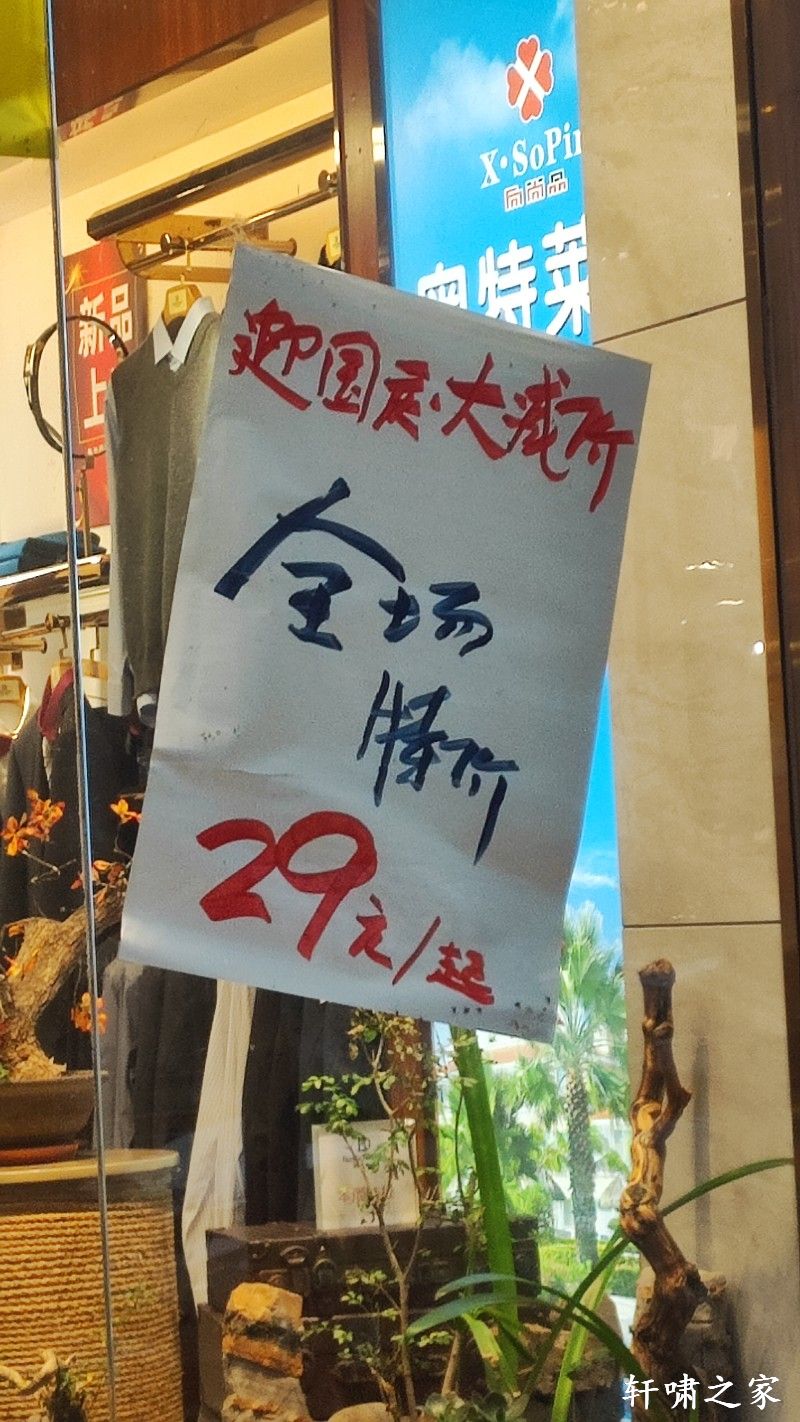 X·SoPin
尚品
奥特莱
新品
上
迎国庆·大减价
全场
特价
29元/起
轩啸之家